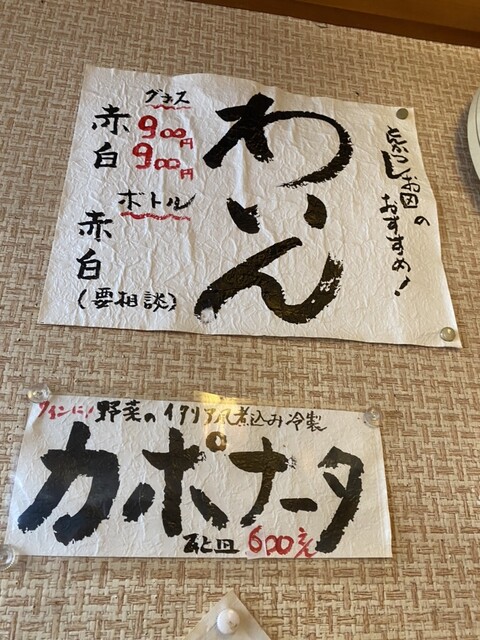 とんかつしお田の
おすすめ!
わいん
グラス
赤 900円
白 900円
ボトル
赤
白
(要相談)
ワインに!野菜のイタリア風煮込み冷製
カポナータ
600円